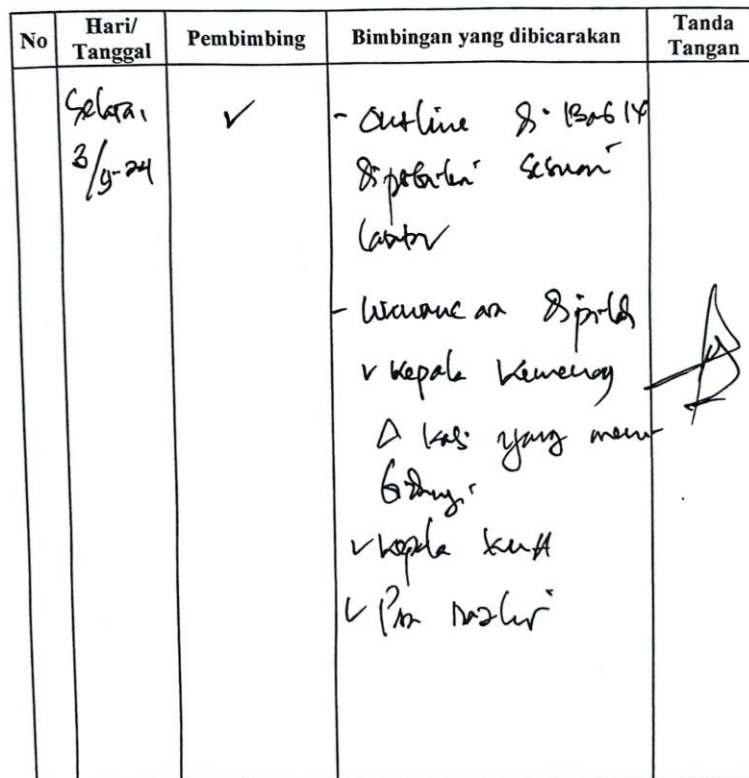 No Hari/ Tanggal Pembimbing Bimbingan yang dibicarakan Tanda Tangan
Selasa,
3/9-24
- Outline di Bab IV
diperbaiki sesuai
- Wawancara
v Kepala Kemenag
yang mem-
bidangi
v Kepala KUA
v Para Nazhir